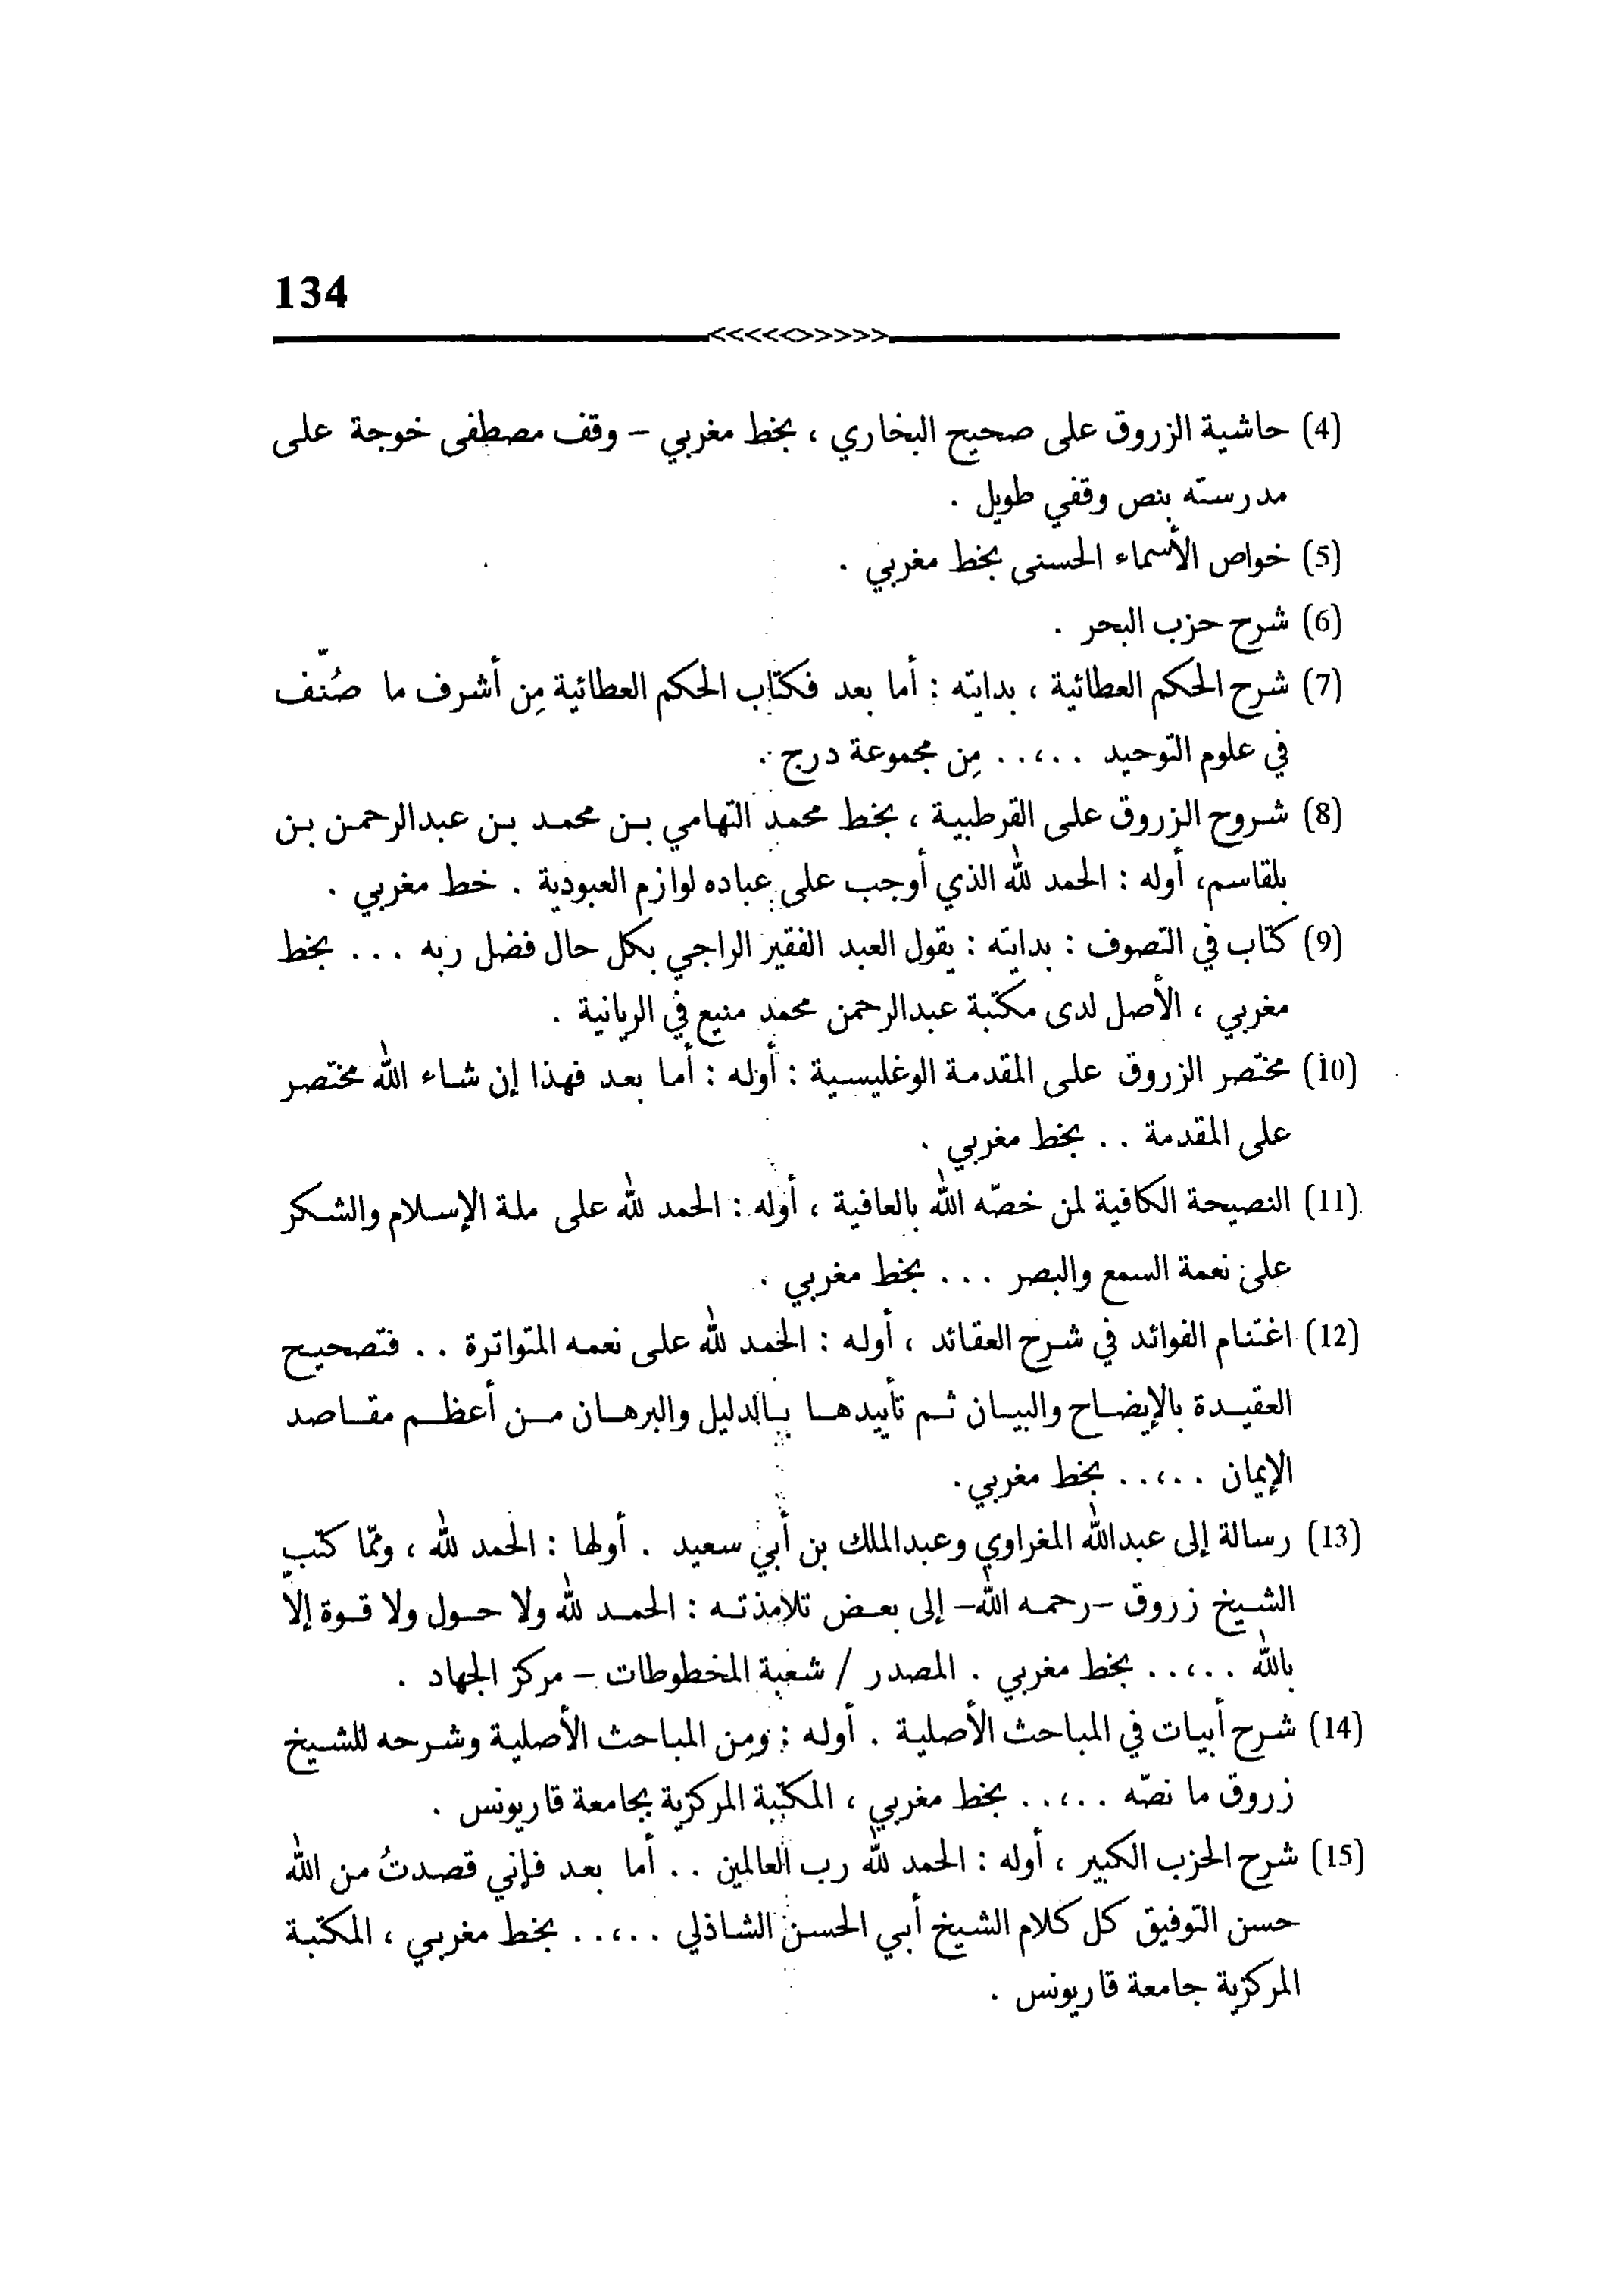 134
(4) حاشية الزروق على صحيح البخاري ، بخط مغربي – وقف مصطفى خوجة على
مدرسته بنص وقفي طويل .
(5) خواص الأسماء الحسنى بخط مغربي .
(6) شرح حزب البحر .
(7) شرح الحكم العطائية ، بدايته : أما بعد فكتاب الحكم العطائية مِن أشرف ما صُنّف
في علوم التوحيد ..،.. مِن مجموعة درج .
(8) شروح الزروق على القرطبية ، بخط محمد التهامي بن محمد بن عبدالرحمن بن
بلقاسم، أوله : الحمد لله الذي أوجب على عباده لوازم العبودية . خط مغربي .
(9) كتاب في التصوف : بدايته : يقول العبد الفقير الراجي بكل حال فضل ربه ... بخط
مغربي ، الأصل لدى مكتبة عبدالرحمن محمد منيع في الريانية .
(10) مختصر الزروق على المقدمة الوغليسية : أوله : أما بعد فهذا إن شاء الله مختصر
على المقدمة .. بخط مغربي .
(11) النصيحة الكافية لمن خصّه الله بالعافية ، أوله : الحمد لله على ملة الإسلام والشكر
على نعمة السمع والبصر ... بخط مغربي .
(12) اغتنام الفوائد في شرح العقائد ، أوله : الحمد لله على نعمه المتواترة .. فتصحيح
العقيدة بالإيضاح والبيان ثم تأييدها بالدليل والبرهان من أعظم مقاصد
الإيمان ..،.. بخط مغربي.
(13) رسالة إلى عبدالله المغراوي وعبدالملك بن أبي سعيد . أولها : الحمد لله ، وممّا كتب
الشيخ زروق –رحمه الله– إلى بعض تلامذته : الحمد لله ولا حول ولا قوة إلاّ
بالله ..،.. بخط مغربي . المصدر / شعبة المخطوطات – مركز الجهاد .
(14) شرح أبيات في المباحث الأصلية . أوله : ومِن المباحث الأصلية وشرحه للشيخ
زروق ما نصّه ..،.. بخط مغربي ، المكتبة المركزية بجامعة قاريونس .
(15) شرح الحزب الكبير ، أوله : الحمد لله رب العالمين .. أما بعد فإني قصدتُ من الله
حسن التوفيق كل كلام الشيخ أبي الحسن الشاذلي ..،.. بخط مغربي ، المكتبة
المركزية جامعة قاريونس .